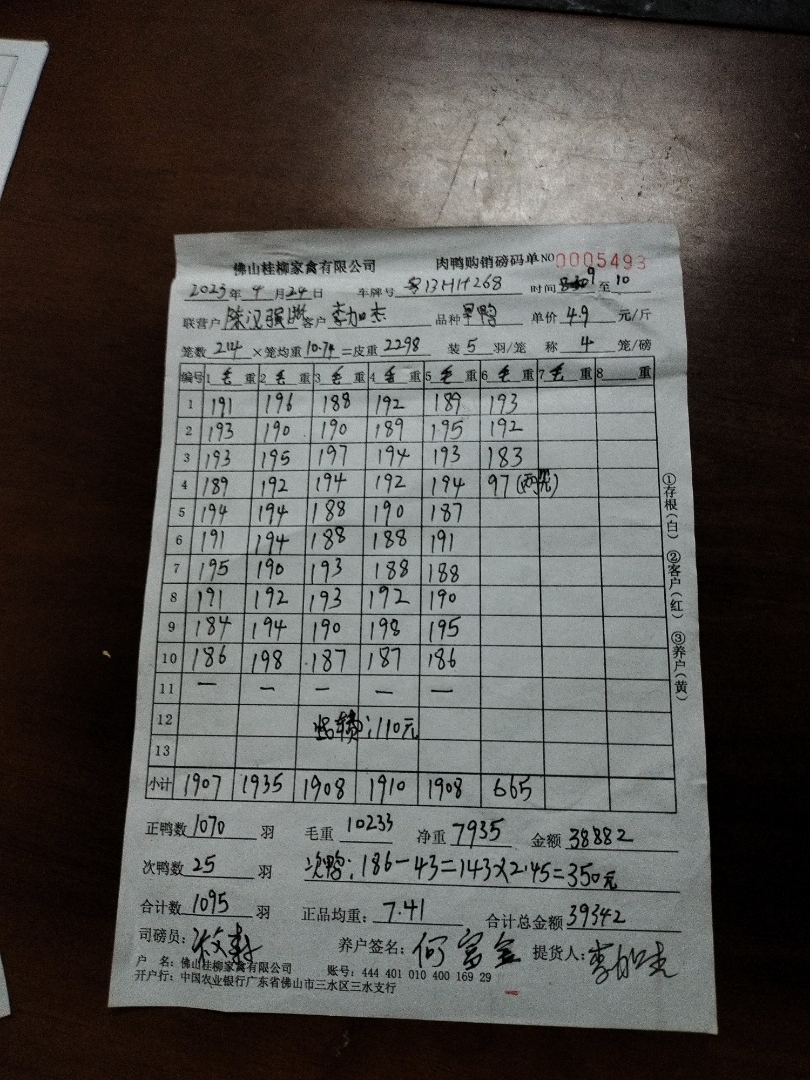 佛山桂柳家禽有限公司 肉鸭购销磅码单 NO 0005493
2023年 4月 24日 车牌号 粤13HH268 时间 9 至 10
联营户 客户 李加杰 品种 单价 4.9 元/斤
笼数 214 ×笼均重 10.74 =皮重 2298 装 5 羽/笼 称 4 笼/磅
编号 1 毛 重 2 毛 重 3 毛 重 4 毛 重 5 毛 重 6 毛 重 7 毛 重 8 重
1 191 196 188 192 189 193
2 193 190 190 189 195 192
3 193 195 197 194 193 183
4 189 192 194 192 194 97 (两笼)
5 194 194 188 190 187
6 191 194 188 188 191
7 195 190 193 188 188
8 191 192 193 192 190
9 184 194 190 198 195
10 186 198 187 187 186
11 — — — — —
12 :110元
13
小计 1907 1935 1908 1910 1908 665
正鸭数 1070 羽 毛重 10233 净重 7935 金额 38882
次鸭数 25 羽 次鸭: 186-43=143×2.45=350元
合计数 1095 羽 正品均重: 7.41 合计总金额 39342
司磅员: 养户签名: 何富全 提货人: 李加杰
户 名: 佛山桂柳家禽有限公司 账号: 444 401 010 400 169 29
开户行: 中国农业银行广东省佛山市三水区三水支行
①存根(白) ②客户(红) ③养户(黄)